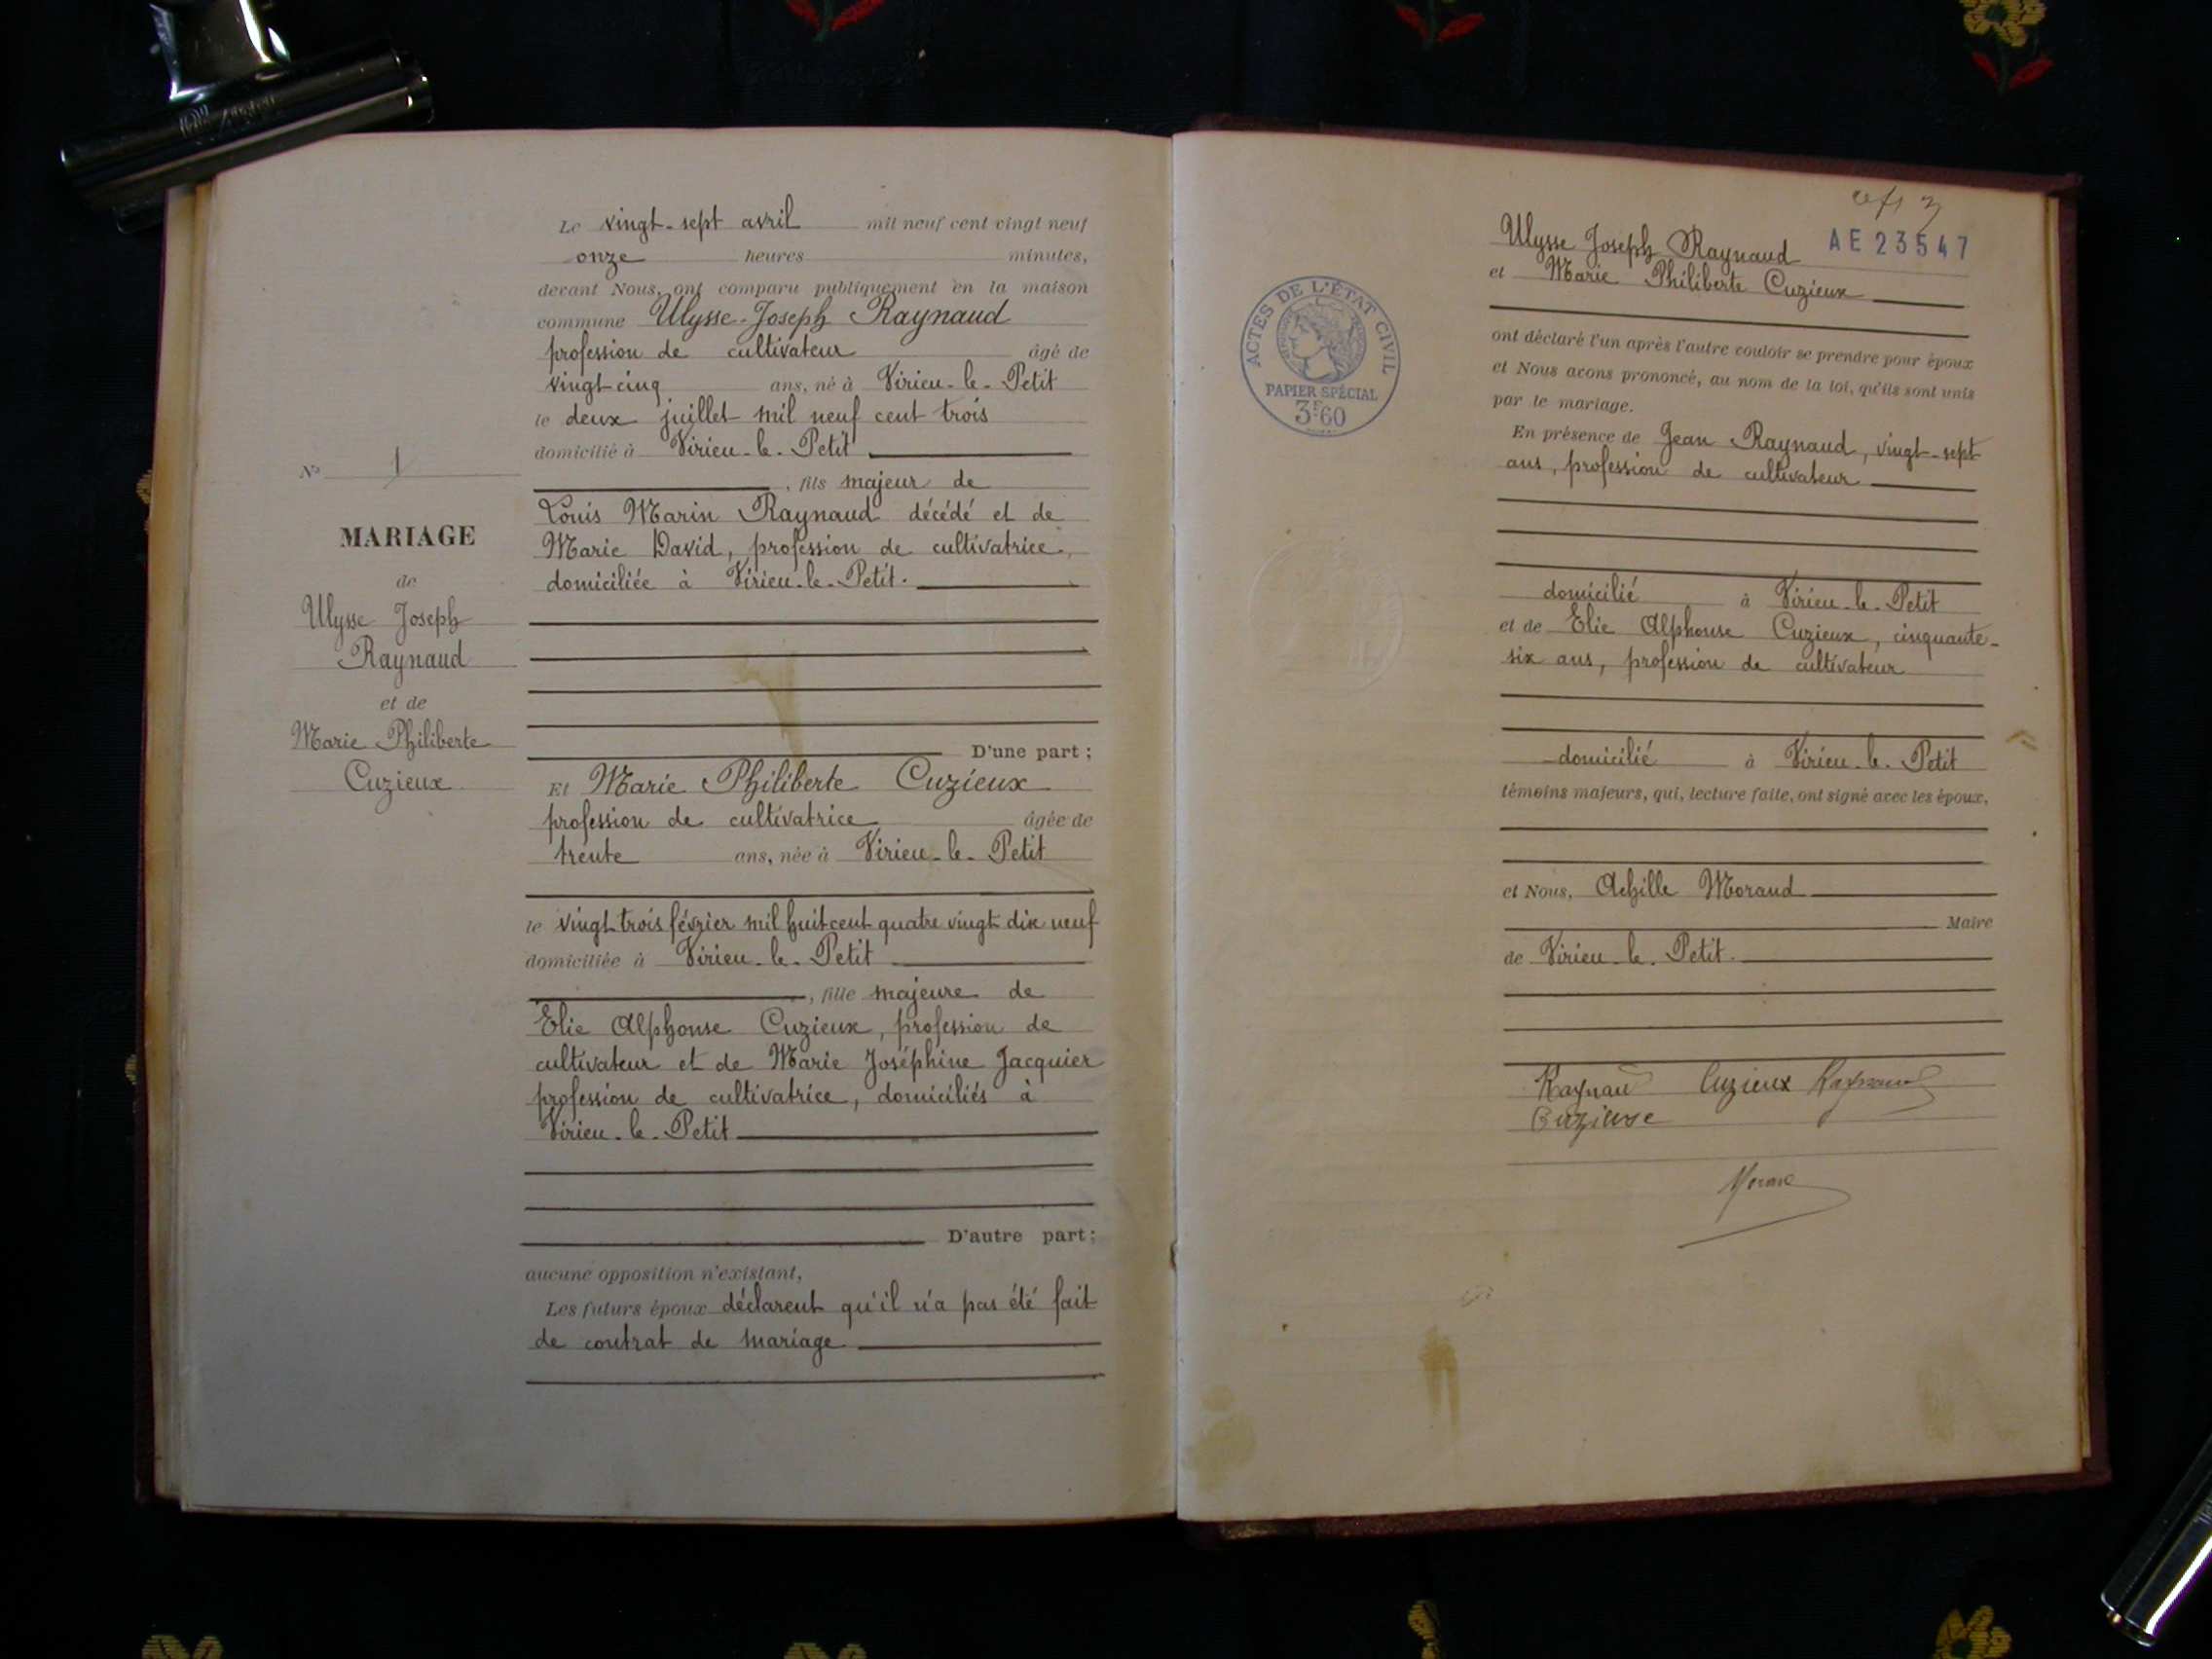 Le vingt-sept avril mil neuf cent vingt neuf
onze heures minutes,
devant Nous, ont comparu publiquement en la maison
commune Ulysse-Joseph Raynaud
profession de cultivateur âgé de
vingt cinq ans, né à Virieu-le-Petit
le deux juillet mil neuf cent trois
domicilié à Virieu-le-Petit
, fils majeur de
Louis Marin Raynaud décédé et de
Marie David, profession de cultivatrice,
domiciliée à Virieu-le-Petit.
D'une part ;
Et Marie Philiberte Cuzieux
profession de cultivatrice âgée de
trente ans, née à Virieu-le-Petit
le vingt trois février mil huit cent quatre vingt dix neuf
domiciliée à Virieu-le-Petit
, fille majeure de
Elie Alphonse Cuzieux, profession de
cultivateur et de Marie Joséphine Jacquier
profession de cultivatrice, domiciliés à
Virieu-le-Petit
D'autre part ;
aucune opposition n'existant,
Les futurs époux déclarent qu'il n'a pas été fait
de contrat de mariage
N° 1
MARIAGE
de
Ulysse Joseph
Raynaud
et de
Marie Philiberte
Cuzieux
AE 23547
Ulysse Joseph Raynaud
et Marie Philiberte Cuzieux
ont déclaré l'un après l'autre vouloir se prendre pour époux
et Nous avons prononcé, au nom de la loi, qu'ils sont unis
par le mariage.
En présence de Jean Raynaud, vingt-sept
ans, profession de cultivateur
domicilié à Virieu-le-Petit
et de Elie Alphonse Cuzieux, cinquante-
six ans, profession de cultivateur
domicilié à Virieu-le-Petit
témoins majeurs, qui, lecture faite, ont signé avec les époux,
et Nous, Achille Morand
Maire
de Virieu-le-Petit.
Raynau Cuzieux Raynaud
Cuzieux
Morand
ACTES DE L'ÉTAT CIVIL
PAPIER SPÉCIAL
3F60